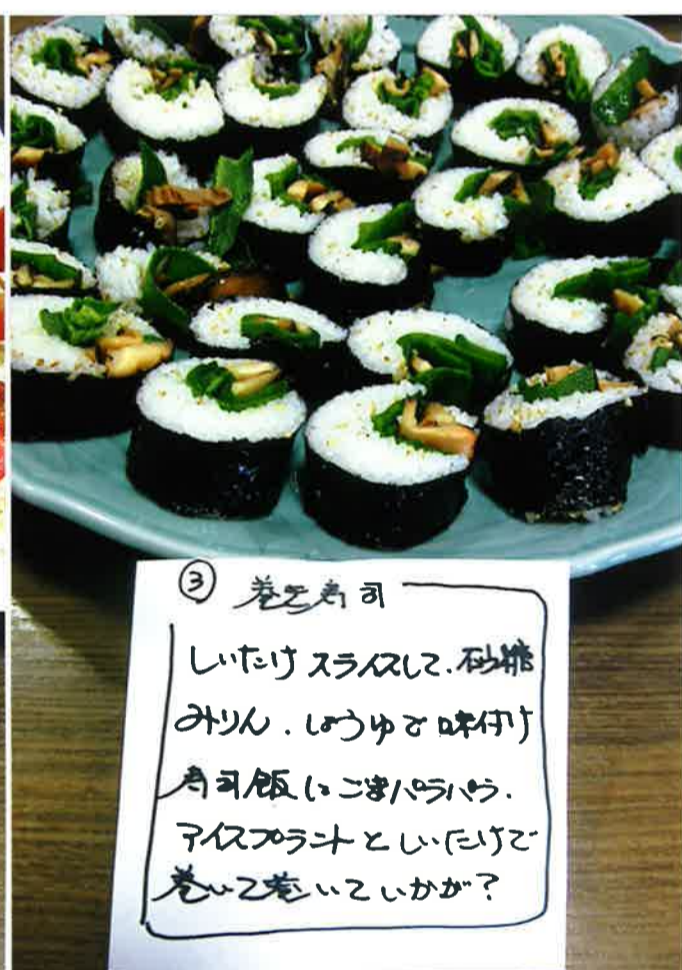 ③ 巻き寿司
しいたけスライスして、砂糖
みりん、しょうゆで味付け
寿司飯にごまパラパラ。
アイスプラントとしいたけで
巻いて巻いていかが？